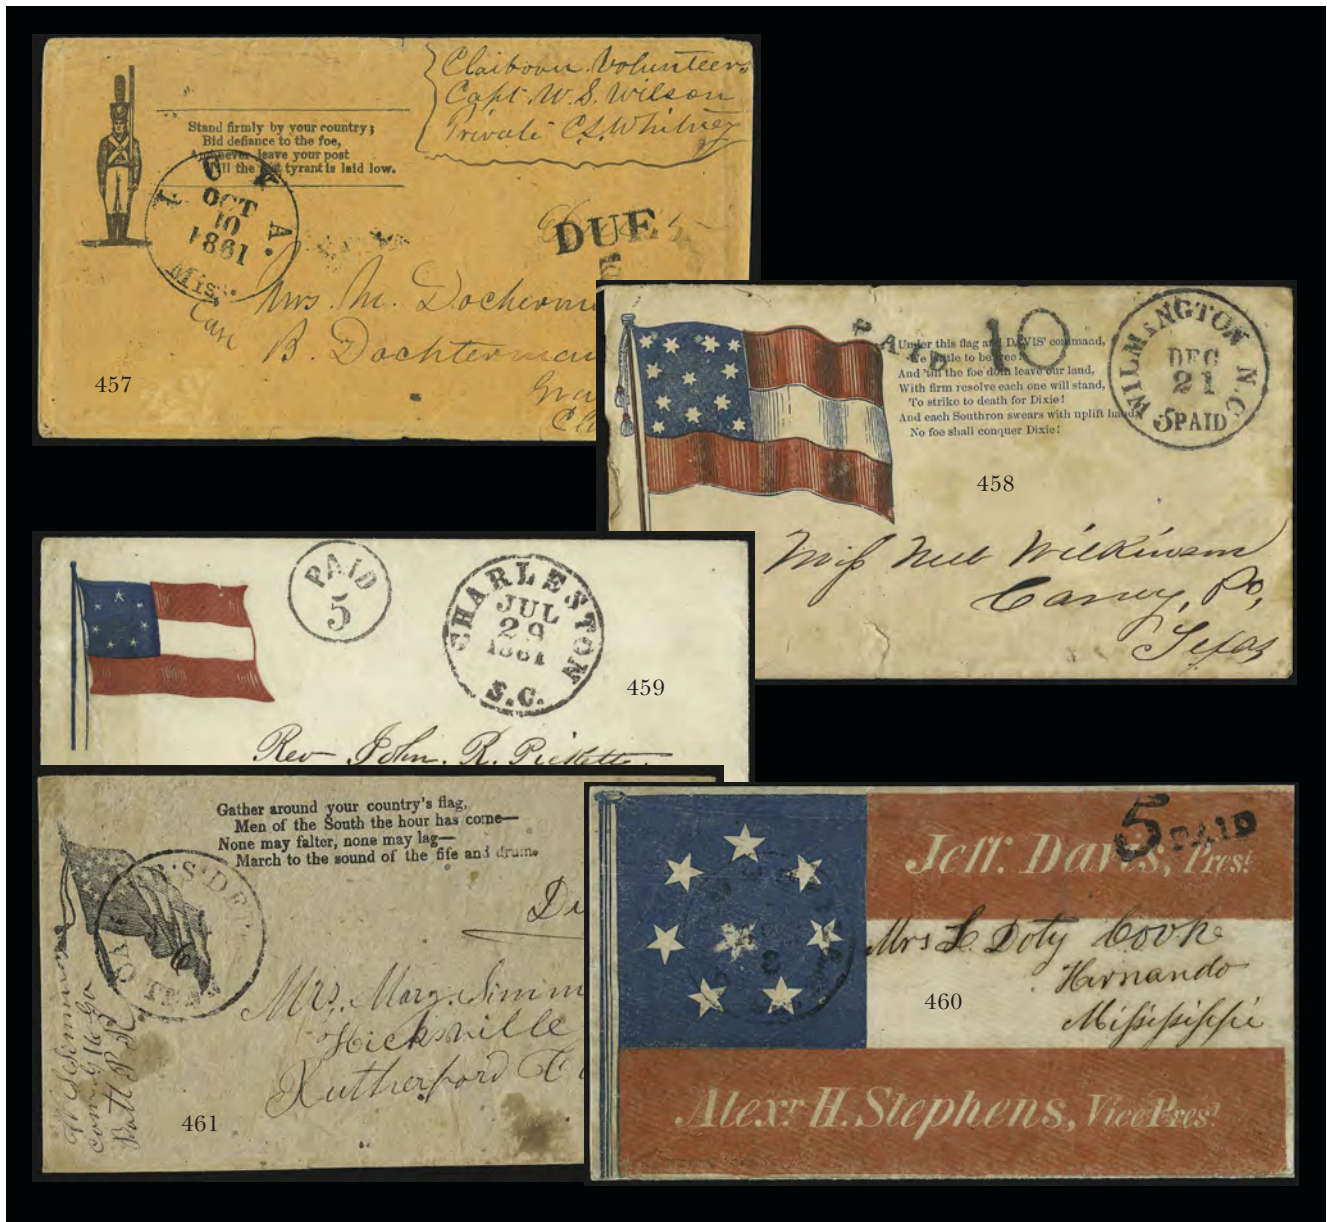 Claiborn Volunteers
Capt. W. S. Wilson
Private C. S. Whitney
Stand firmly by your country;
Bid defiance to the foe,
And never leave your post
Till the tyrant is laid low.
I U K A.
OCT
10
1861
Mis.
DUE
5
Mrs. M.
Care
B. Dochterman
457
PAID 10
Under this flag and DAVIS' command,
We battle to be free!
And 'till the foe doth leave our land,
With firm resolve each one will stand,
To strike to death for Dixie!
And each Southron swears with uplift hand,
No foe shall conquer Dixie!
WILMINGTON N.C.
DEC
21
5 PAID
458
Miss Wilkinson
Caney, Po,
Texas
PAID
5
CHARLESTON
JUL
29
1861
S.C.
459
Rev John. R. Picketts
Gather around your country's flag,
Men of the South the hour has come—
None may falter, none may lag—
March to the sound of the fife and drum.
TEN
Du
Mrs. Mary. Simm
Hicksville
Rutherford
W Simmons
Com G 16 Ga
Batt P R
461
Jeff. Davis, Prest.
5 PAID
Mrs L Doty Cooke
Hernando
Mississippi
460
Alexr. H. Stephens, Vice Prest.